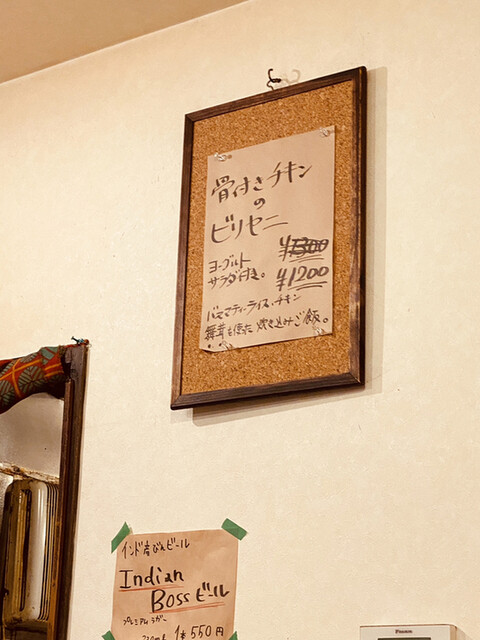 骨付きチキン
の
ビリヤニ
¥1300
ヨーグルト
サラダ付き。 ¥1200
バスマティーライス、チキン
舞茸を使た 炊き込みご飯。
インド産びんビール
Indian
Boss ビール
プレミアムラガー
1本 550円